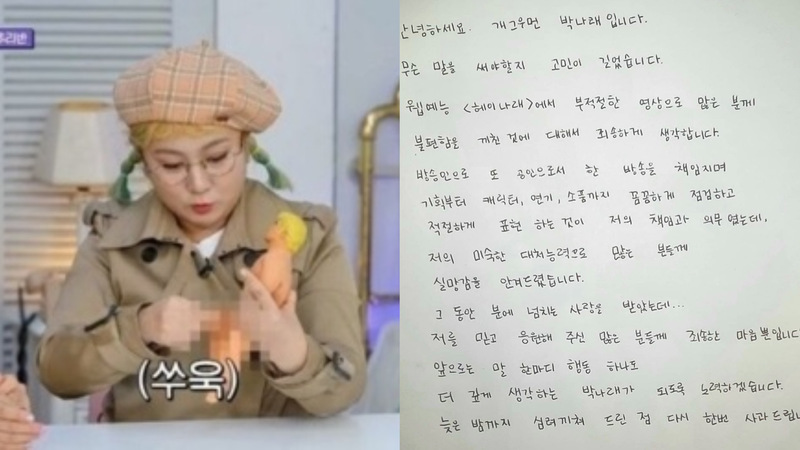 (쑤욱)
안녕하세요. 개그우먼 박나래입니다.
무슨 말을 써야할지 고민이 길었습니다.
웹예능 <헤이나래>에서 부적절한 영상으로 많은 분께
불편함을 끼친 것에 대해서 죄송하게 생각합니다.
방송인으로 또 공인으로서 한 방송을 책임지며
기획부터 캐릭터, 연기, 소품까지 꼼꼼하게 점검하고
적절하게 표현 하는 것이 저의 책임과 의무 였는데,
저의 미숙한 대처능력으로 많은 분들께
실망감을 안겨드렸습니다.
그 동안 분에 넘치는 사랑을 받았는데...
저를 믿고 응원해 주신 많은 분들께 죄송한 마음뿐입니다
앞으로는 말 한마디 행동 하나도
더 깊게 생각하는 박나래가 되도록 노력하겠습니다.
늦은 밤까지 심려끼쳐 드린 점 다시 한번 사과드립니